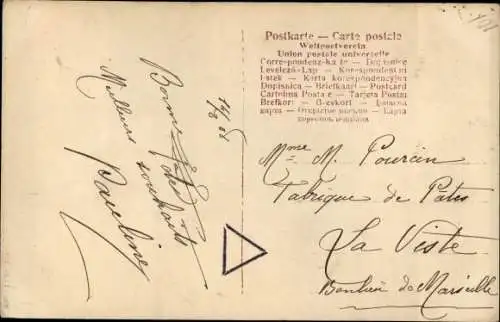 Postkarte — Carte postale
Weltpostverein
Union postale universelle
Correspondenz-karte — Dopisnice
Levelező-Lap — Korespondeční
lístek — Karta korespondencyjna
Dopisnica — Briefkaart — Postcard
Cartolina Postale — Tarjeta Postal
Brefkort — Brevkort —
14/8 08
Bonne fête
Meilleurs souhaits
Pauline
Mme M. Pourcin
Fabrique de Pâtes
La Viste
Banlieue de Marseille